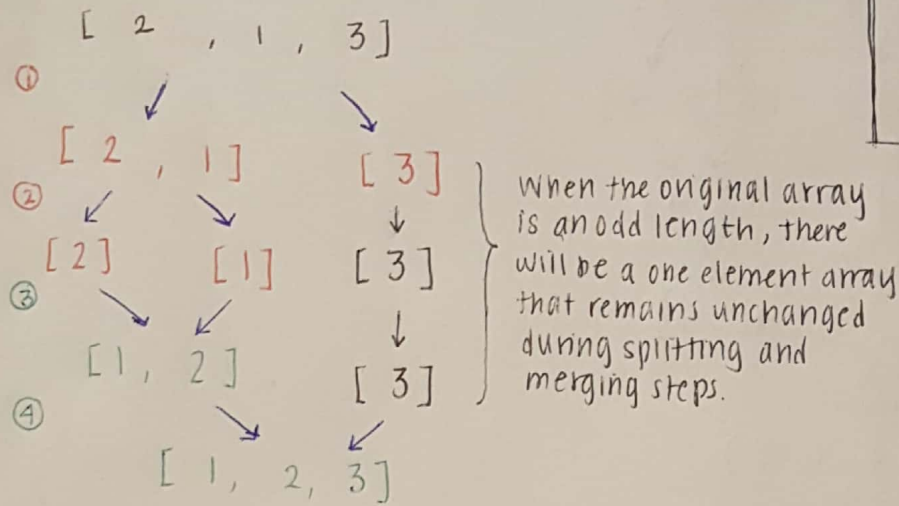 [ 2 , 1 , 3 ]
①
[ 2 , 1 ] [ 3 ]
②
[ 2 ] [ 1 ] [ 3 ]
③
[ 1 , 2 ] [ 3 ]
④
[ 1 , 2 , 3 ]
When the original array
is an odd length, there
will be a one element array
that remains unchanged
during splitting and
merging steps.